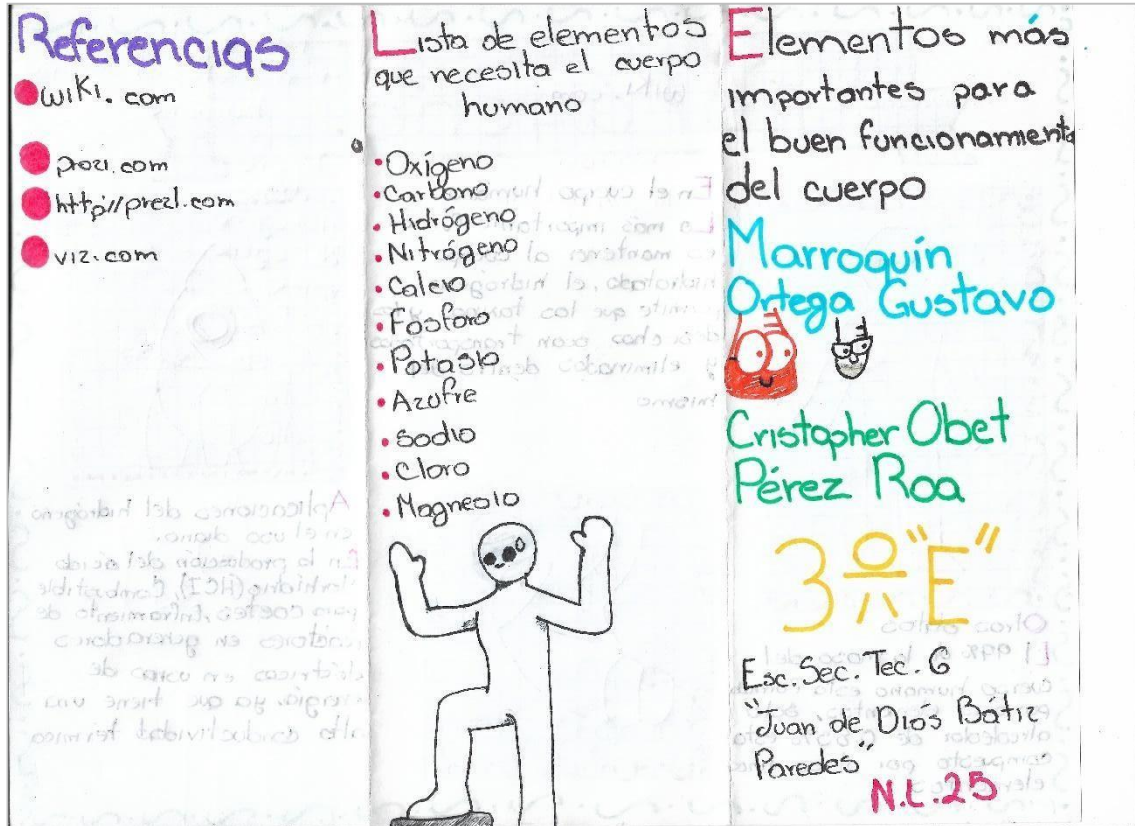 Referencias
wiki.com
prozi.com
http//prezl.com
viz.com
Lista de elementos
que necesita el cuerpo
humano
Oxígeno
Carbono
Hidrógeno
Nitrógeno
Calcio
Fosforo
Potasio
Azufre
Sodio
Cloro
Magnesio
Elementos más
importantes para
el buen funcionamiento
del cuerpo
Marroquín
Ortega Gustavo
Cristopher Obet
Pérez Roa
3º "E"
Esc. Sec. Tec. 6
"Juan de Diós Bátiz
Paredes"
N.L.25